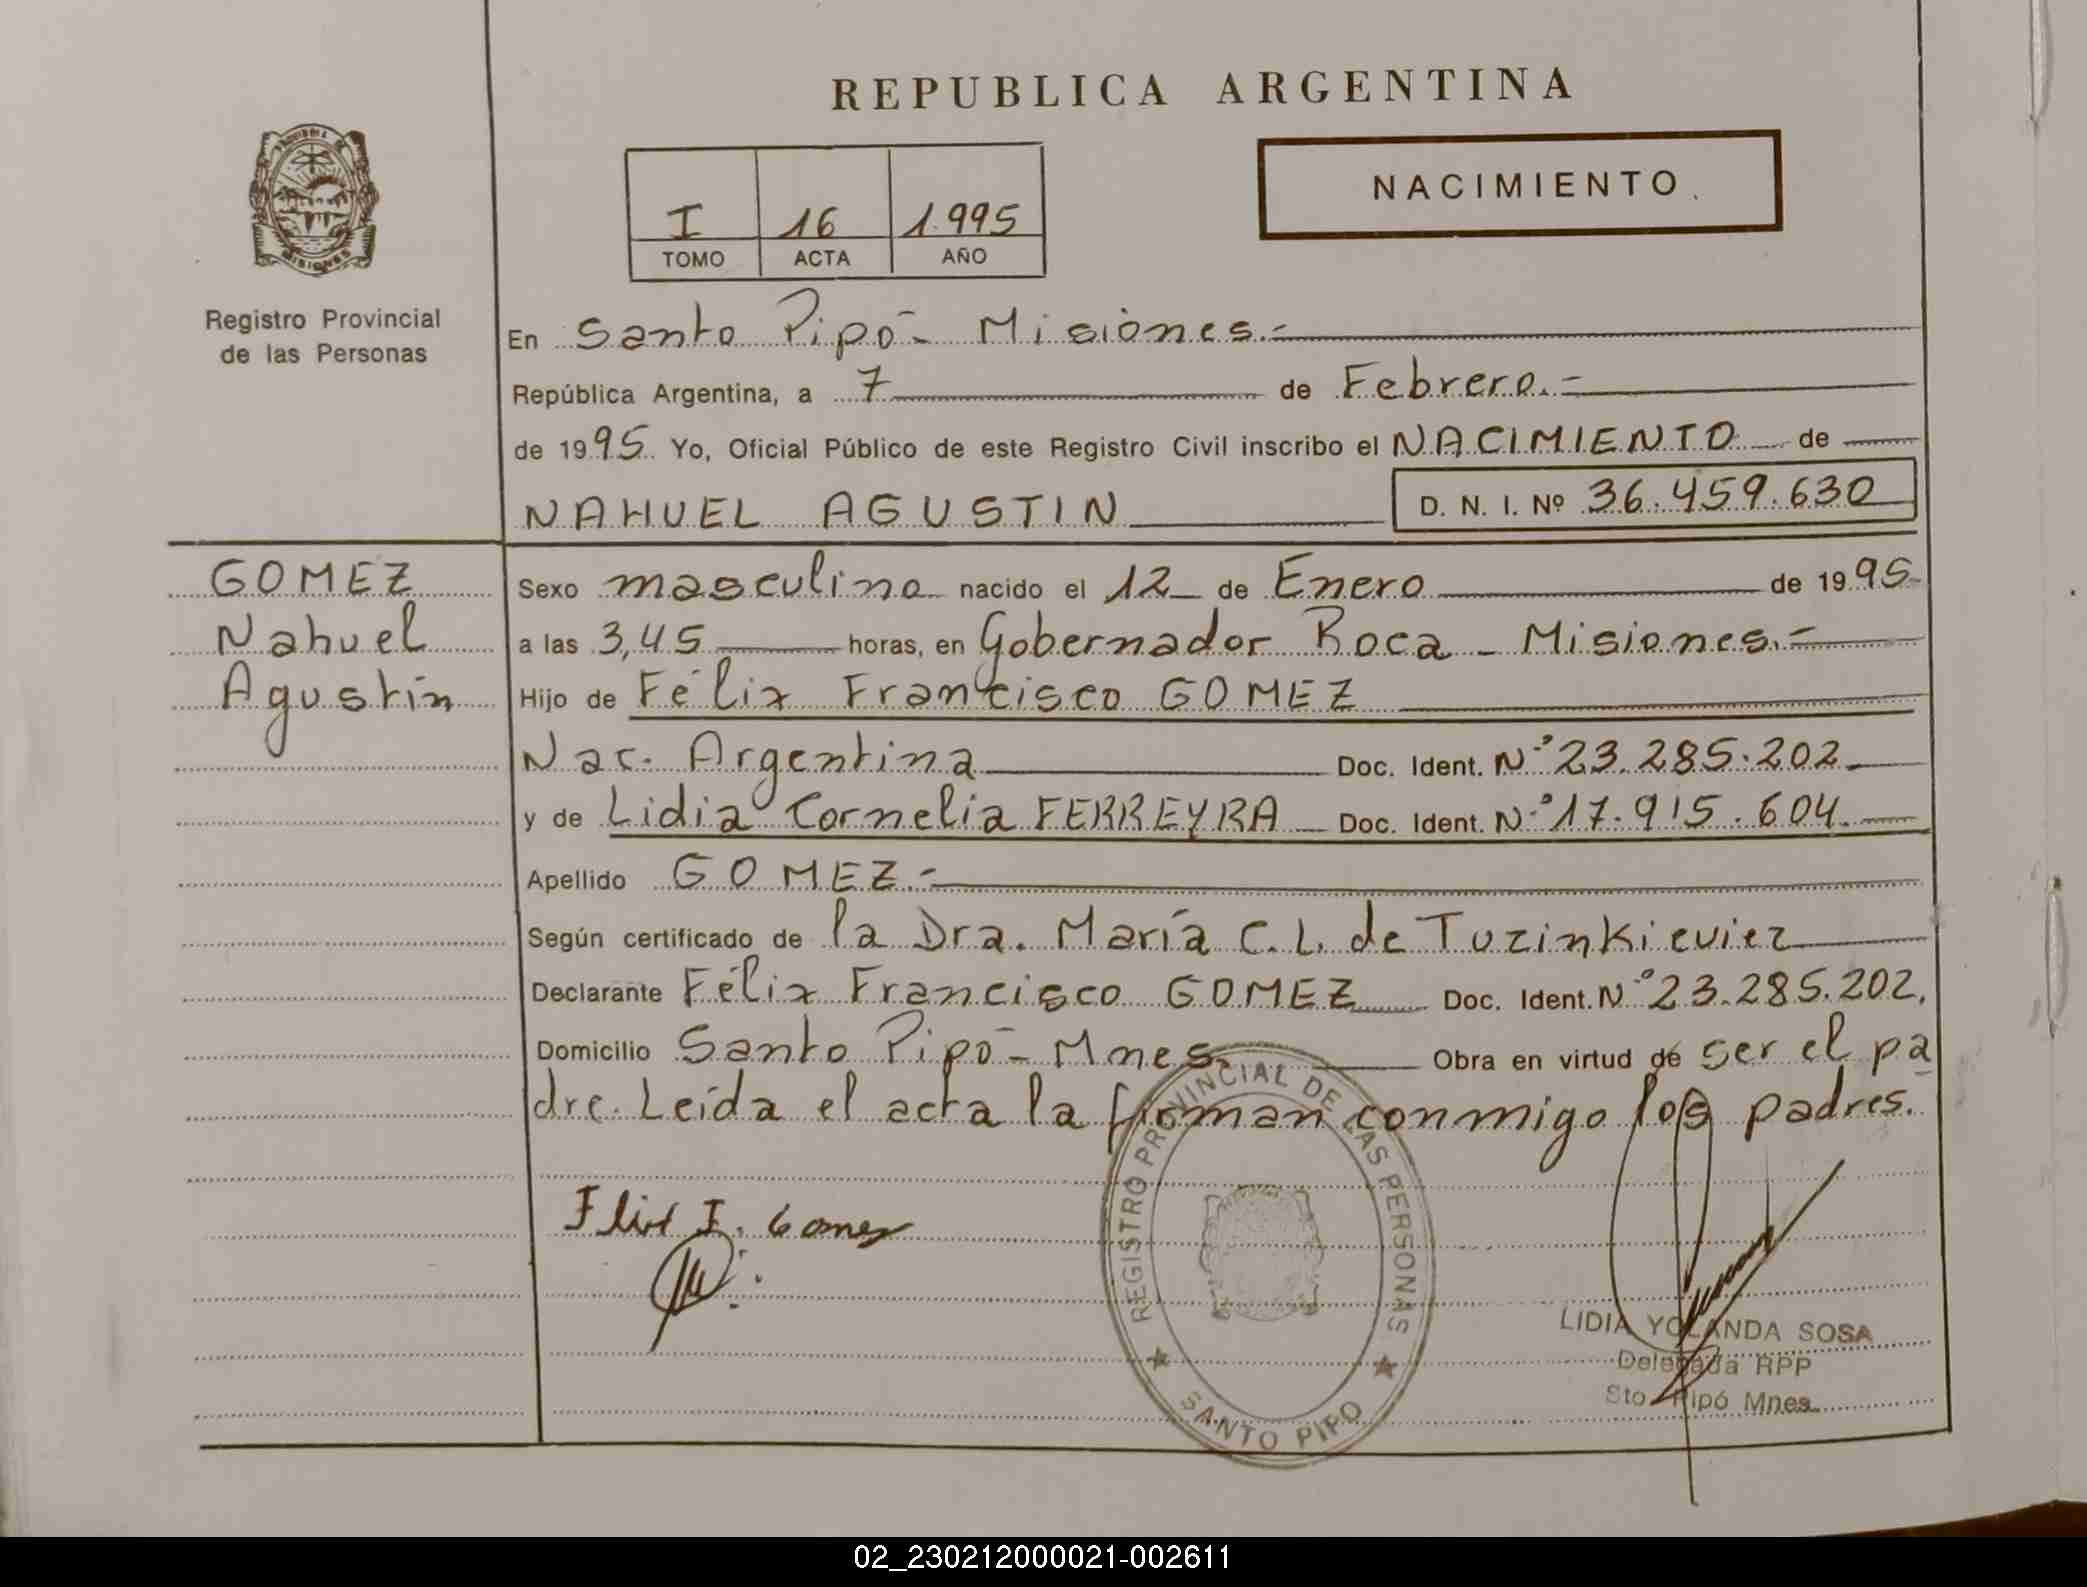 REPUBLICA ARGENTINA
NACIMIENTO.
I 16 1.995
TOMO ACTA AÑO
PROVINCIA DE
MISIONES
Registro Provincial
de las Personas
En Santo Pipó - Misiones.-
República Argentina, a 7 de Febrero.-
de 1995. Yo, Oficial Público de este Registro Civil inscribo el NACIMIENTO de
NAHUEL AGUSTIN D. N. I. Nº 36.459.630
GOMEZ
Nahuel
Agustín
Sexo masculino nacido el 12 de Enero de 1995
a las 3,45 horas, en Gobernador Roca - Misiones.-
Hijo de Félix Francisco GOMEZ
Nac. Argentina Doc. Ident. Nº 23.285.202.
y de Lidia Cornelia FERREYRA Doc. Ident. Nº 17.915.604.
Apellido GOMEZ.-
Según certificado de la Dra. María C. L. de Tuzinkievicz
Declarante Félix Francisco GOMEZ Doc. Ident. Nº 23.285.202.
Domicilio Santo Pipó - Mnes. Obra en virtud de ser el pa
dre. Leída el acta la firman conmigo los padres.
REGISTRO PROVINCIAL DE LAS PERSONAS
SANTO PIPO
LIDIA YOLANDA SOSA
Delegada RPP
Sto. Pipó Mnes.
02_230212000021-002611